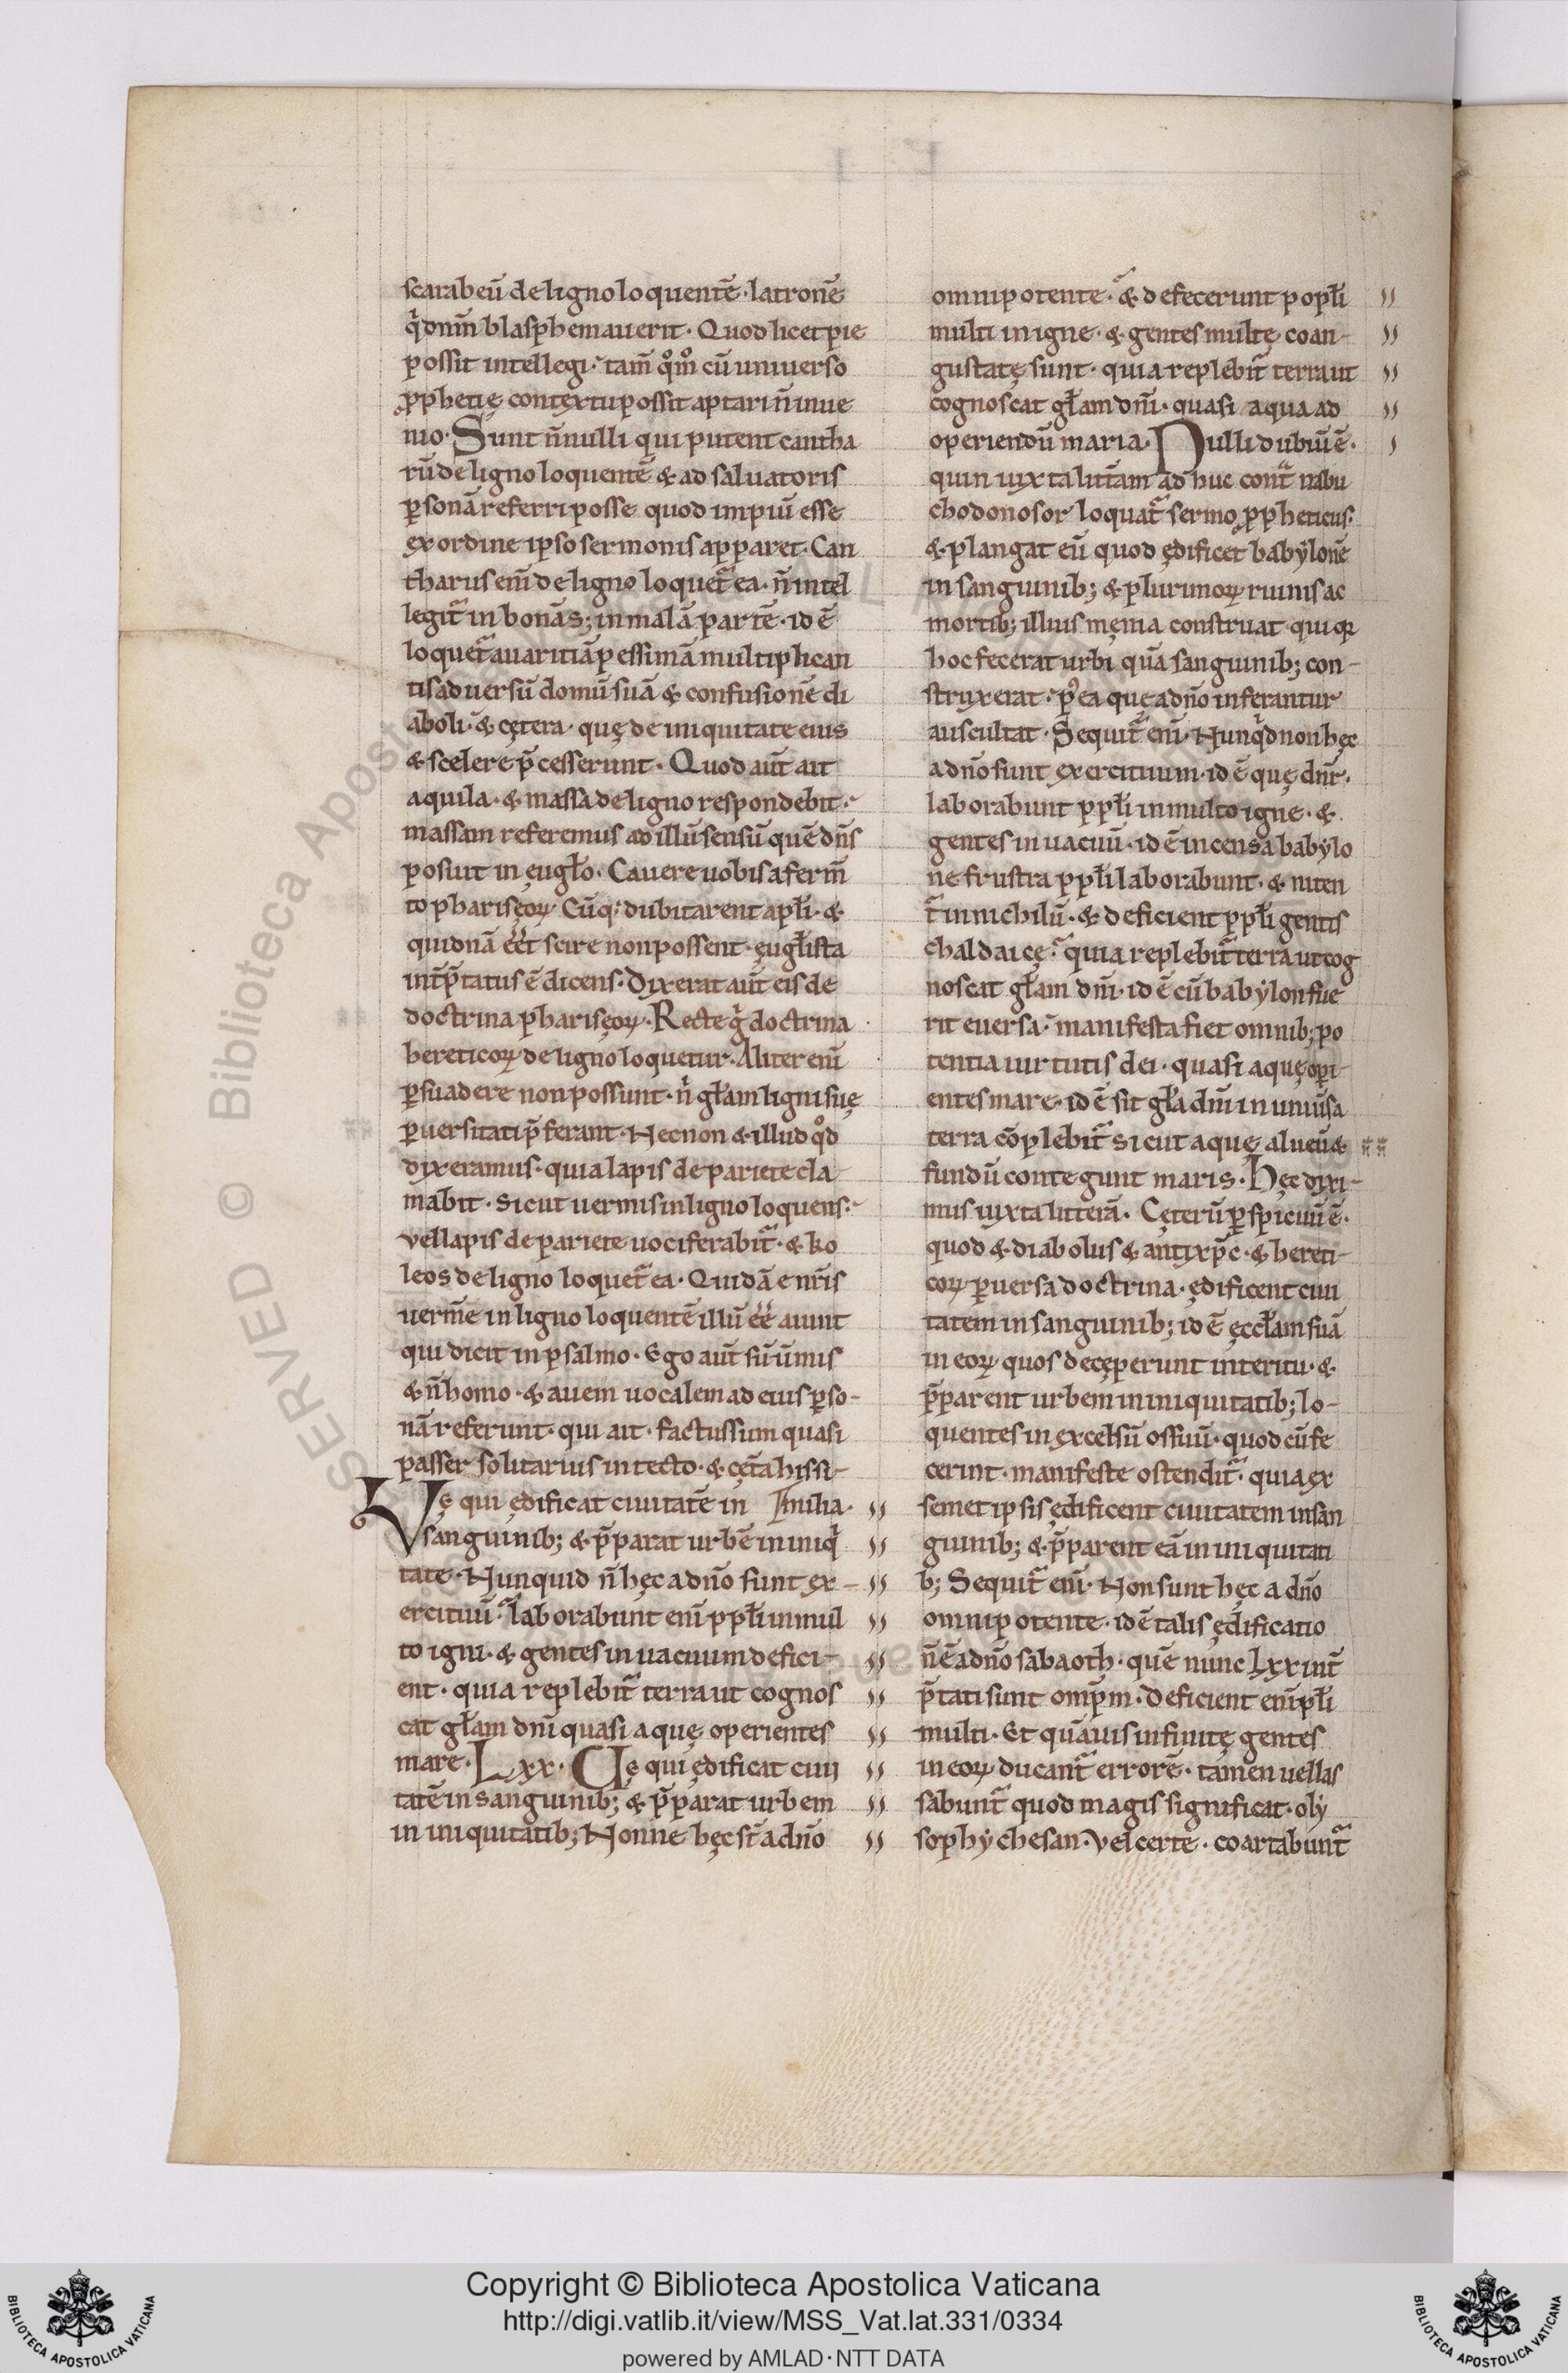 scarabeū de ligno loquentē · latronē
q̇ dnm̄ blasphemauerit · Quod licet pie
possit intellegi · tam̄ qͦm̊ cū uniuerso
ꝓphetię contextu possit aptari n̄ inue
nio · Sunt n̄nulli qui putent cantha
rū de ligno loquentē & ad saluatoris
ꝑsonā referri posse quod impiū esse
ex ordine ipso sermonis apparet · Can
tharus eni̅ de ligno loquet᷑ ea · n̄ intel
legit᷑ in bonā s; in malā partē · id ē
loquet᷑ auaritiā pessimā multiplican
tis aduersū domū suā & confusionē di
aboli · & cętera · quę de iniquitate eius
& scelere p̄cesserunt · Quod aut̄ ait
aquila · & massa de ligno respondebit ·
massam referemus ad illū sensū quē dn̄s
posuit in eugło · Cauere uobis a ferm̄
to phariseoꝝ · Cūq; dubitarent apłi · &
quidnā ee̅t scire non possent · euglista
int̄p̄tatus ē dicens · Dixerat aut̄ eis de
doctrina phariseoꝝ · Recte g̊ doctrina
hereticoꝝ de ligno loquetur · Aliter eni̅
ꝑsuadere non possunt · n̊ głam ligni suę
ꝑuersitati p̄ferant · Necnon & illud qͦd
dixeramus · quia lapis de pariete cla-
mabit · sicut uermis in ligno loquens ·
vel lapis de pariete uociferabit᷑ · & ko
leos de ligno loquet᷑ ea · Quidā e nr̄is
uerm̄e in ligno loquentē illū ee̅ aiunt
qui dicit in psalmo · Ego aut̄ sū ūmis
& n̄ homo · & auem uocalem ad eius ꝑso-
nā referunt · qui ait · factus sum quasi
passer solitarius in tecto · & cęt̄a his si-
Vę qui ędificat ciuitatē in milia ·
sanguinib; & p̄parat urbē in iniq̇
tate · Nunquid n̄ hęc a dn̄o sunt ex-
ercituū · laborabunt eni̅ ppłi in mul
to igni · & gentes in uacuum defici-
ent · quia replebit᷑ terra ut cognos
cat głam dn̄i quasi aquę operientes
mare · Lxx · Uę qui ędificat ciui
tatē in sanguinib; & p̄parat urbem
in iniquitatib; Nonne hęc st̄ a dn̄o
omnipotente · & defecerunt popłi
multi in igne · & gentes multę coan-
gustatę sunt · quia replebit᷑ terra ut
cognoscat głam dn̄i · quasi aqua ad
operiendū maria · Nulli dubiū ē ·
quin iuxta litt̄am ad huc cont̄ nabu
chodonosor loquat᷑ sermo ꝓpheticus ·
& plangat eū quod ędificet babylonē
in sanguinib; & plurimoꝝ ruinis ac
mortib; illius męnia construat · quiqꝫ
hoc fecerat urbi quā sanguinib; con-
struxerat · p᷒ ea quę a dn̄o inferantur
auscultat · Sequit᷑ eni̅ · Nunq̇d non hęc
a dn̄o sunt exercituum · id ē quę dn̄r ·
laborabunt ppłi in multo igne · &
gentes in uacuū · id ē incensa babylo
ne frustra ppłi laborabunt · & niten
t᷑ in nichilū · & deficient ppłi gentis
chaldaicę · quia replebit᷑ terra ut cog
noscat głam dn̄i · id ē cū babylon fue
rit euersa · manifesta fiet omnib; po
tentia uirtutis dei · quasi aquę operi-
entes mare · id ē sit gła dn̄i in uniūsa
terra cōplebit᷑ sicut aquę alueū &
fundū contegunt maris · Hęc dixi-
mus iuxta litterā · Cęterū ꝑspicuū ē ·
quod & diabolus & antixp̄c · & hereti-
coꝝ ꝑuersa doctrina · ędificent ciui
tatem in sanguinib; id ē ęccłam suā
in eoꝝ quos decęperunt interitu · &
p̄parent urbem in iniquitatib; lo-
quentes in excelsū ossuū · quod cū fe
cerint · manifeste ostendit᷑ · quia ex
semet ipsis ędificent ciuitatem in san
guinib; & p̄parent eā in iniquitati
b; Sequit᷑ eni̅ · Non sunt hęc a dn̄o
omnipotente · id ē talis ędificatio
n̄ ē a dn̄o sabaoth · quē nunc Lxx int̄
p̄tati sunt omp̄m · deficient eni̅ płi
multi · Et quāuis infinitę gentes
in eoꝝ ducant᷑ errorē · tamen uel las
sabunt᷑ quod magis significat · oly
sophychesan · Vel certe · coartabunt᷑
Copyright © Biblioteca Apostolica Vaticana
http://digi.vatlib.it/view/MSS_Vat.lat.331/0334
powered by AMLAD·NTT DATA